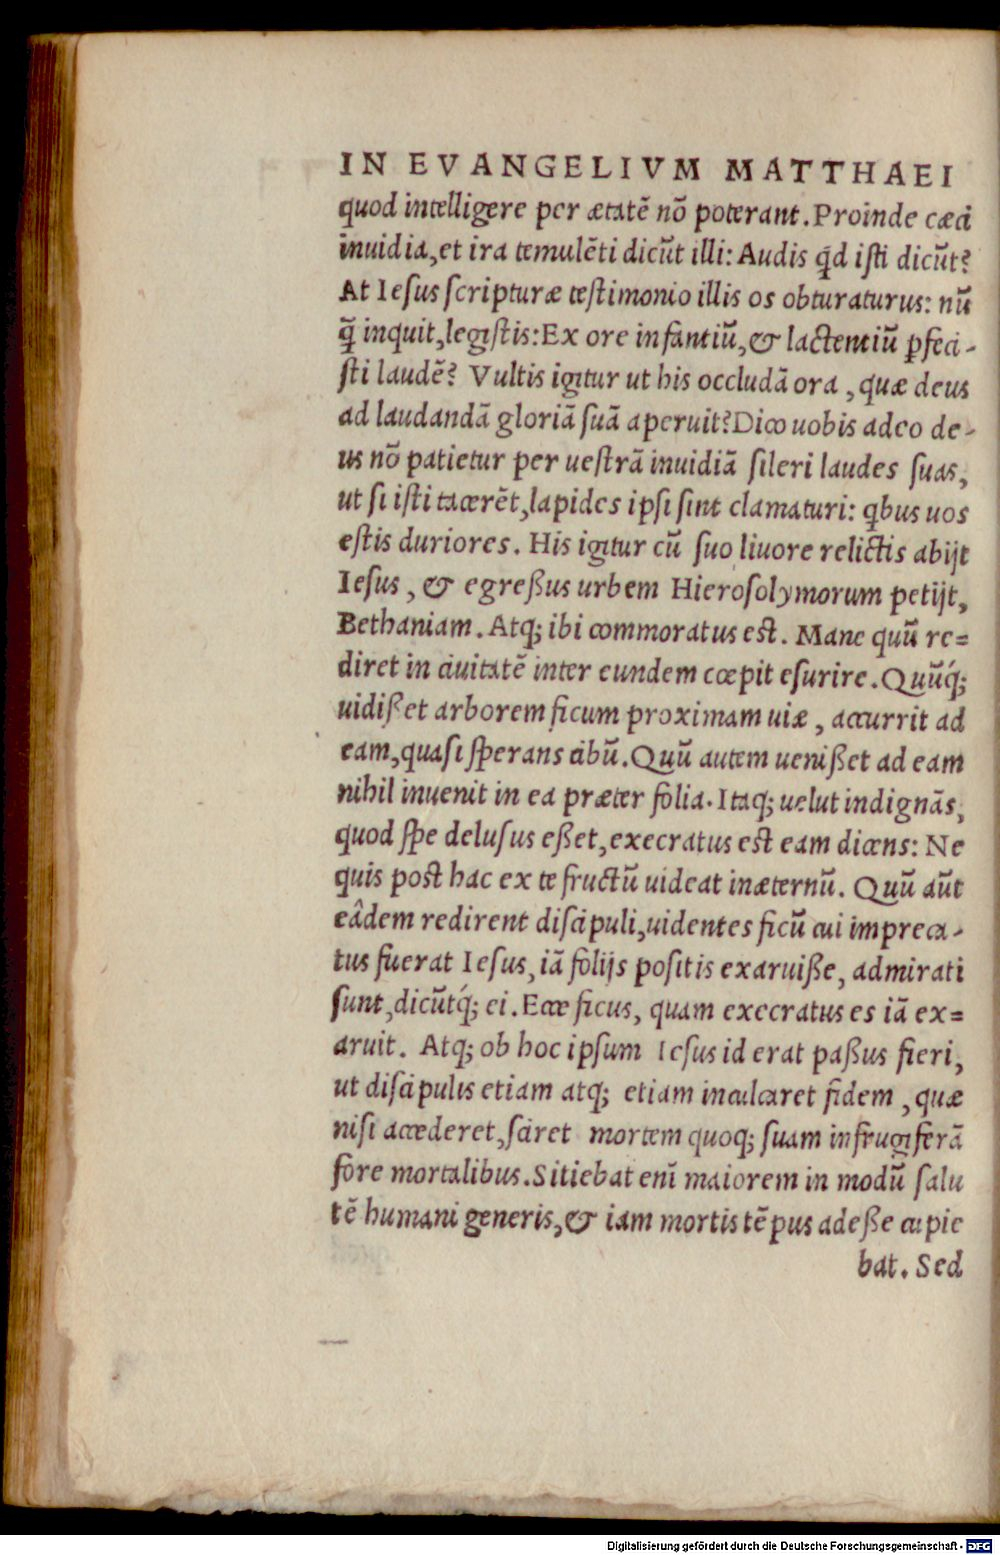 IN EVANGELIVM MATTHAEI
quod intelligere per ætatē nō poterant. Proinde cæci
inuidia, et ira temulēti dicūt illi: Audis qͥd iſti dicūt?
At Ieſus ſcripturæ teſtimonio illis os obturaturus: nū
q̃ inquit, legiſtis: Ex ore infantiū, & lactentiū ꝑfeci-
ſti laudē? Vultis igitur ut his occludā ora, quæ deus
ad laudandā gloriā ſuā aperuit? Dico uobis adeo de-
us nō patietur per ueſtrā inuidiā ſileri laudes ſuas,
ut ſi iſti tacerēt, lapides ipſi ſint clamaturi: qͥbus uos
eſtis duriores. His igitur cū ſuo liuore relictis abijt
Ieſus, & egreßus urbem Hieroſolymorum petijt,
Bethaniam. Atq; ibi commoratus eſt. Mane quū re=
diret in ciuitatē inter eundem cœpit eſurire. Quūq́;
uidißet arborem ficum proximam uiæ, accurrit ad
eam, quaſi ſperans cibū. Quū autem uenißet ad eam
nihil inuenit in ea præter folia. Itaq; uelut indignās,
quod ſpe deluſus eßet, execratus eſt eam dicens: Ne
quis poſt hac ex te fructū uideat inæternū. Quū aūt
eâdem redirent diſcipuli, uidentes ficū cui impreca-
tus fuerat Ieſus, iā folijs poſitis exaruiße, admirati
ſunt, dicūtq́; ei. Ecce ficus, quam execratus es iā ex=
aruit. Atq; ob hoc ipſum Ieſus id erat paßus fieri,
ut diſcipulis etiam atq; etiam inculcaret fidem, quæ
niſi accederet, ſciret mortem quoq; ſuam infrugiferā
fore mortalibus. Sitiebat enī maiorem in modū ſalu
tē humani generis, & iam mortis tēpus adeße cupie
bat. Sed
Digitalisierung gefördert durch die Deutsche Forschungsgemeinschaft - DFG